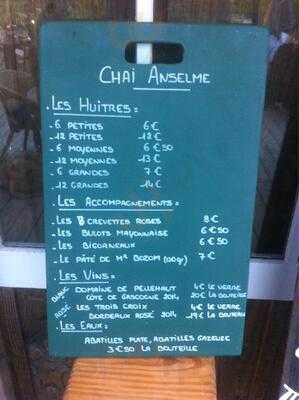 CHAI ANSELME
. LES HUITRES :
- 6 PETITES 6 €
- 12 PETITES 12 €
- 6 MOYENNES 6 € 50
- 12 MOYENNES 13 €
- 6 GRANDES 7 €
- 12 GRANDES 14 €
. LES ACCOMPAGNEMENTS :
- LES 8 CREVETTES ROSES 8 €
- LES BULOTS MAYONNAISE 6 € 50
- LES BIGORNEAUX 6 € 50
- LE PÂTÉ DE Mr (100gr) 7 €
. LES VINS :
DOMAINE DE PELLEHAUT 4 € LE VERRE
CÔTE DE GASCOGNE 2014 20 € LA BOUTEILLE
ROSÉ LES TROIS CROIX 4 € LE VERRE
BORDEAUX ROSÉ 2014 19 € LA BOUTEILLE
. LES EAUX :
ABATILLES PLATE, ABATILLES GAZEUSE
3 € 50 LA BOUTEILLE